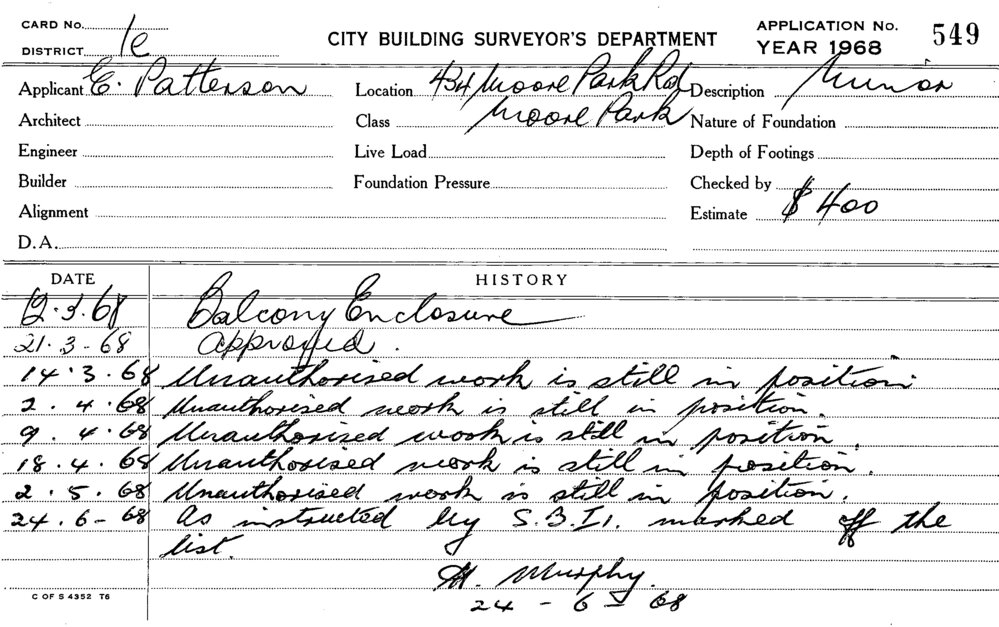 CARD No.
DISTRICT 1e
CITY BUILDING SURVEYOR'S DEPARTMENT
APPLICATION No. 549
YEAR 1968
Applicant E. Patterson
Location 434 Moore Park Rd
Description Minor
Architect
Class Moore Park
Nature of Foundation
Engineer
Live Load
Depth of Footings
Builder
Foundation Pressure
Checked by
Alignment
Estimate $400
D.A.
DATE HISTORY
12.3.68 Balcony Enclosure
21.3-68 Approved.
14.3.68 Unauthorised work is still in position.
2.4.68 Unauthorised work is still in position.
9.4.68 Unauthorised work is still in position.
18.4.68 Unauthorised work is still in position.
2.5.68 Unauthorised work is still in position.
24.6-68 As instructed by S.B.I. marked off the
list.
Murphy.
24-6-68
C OF S 4352 T6